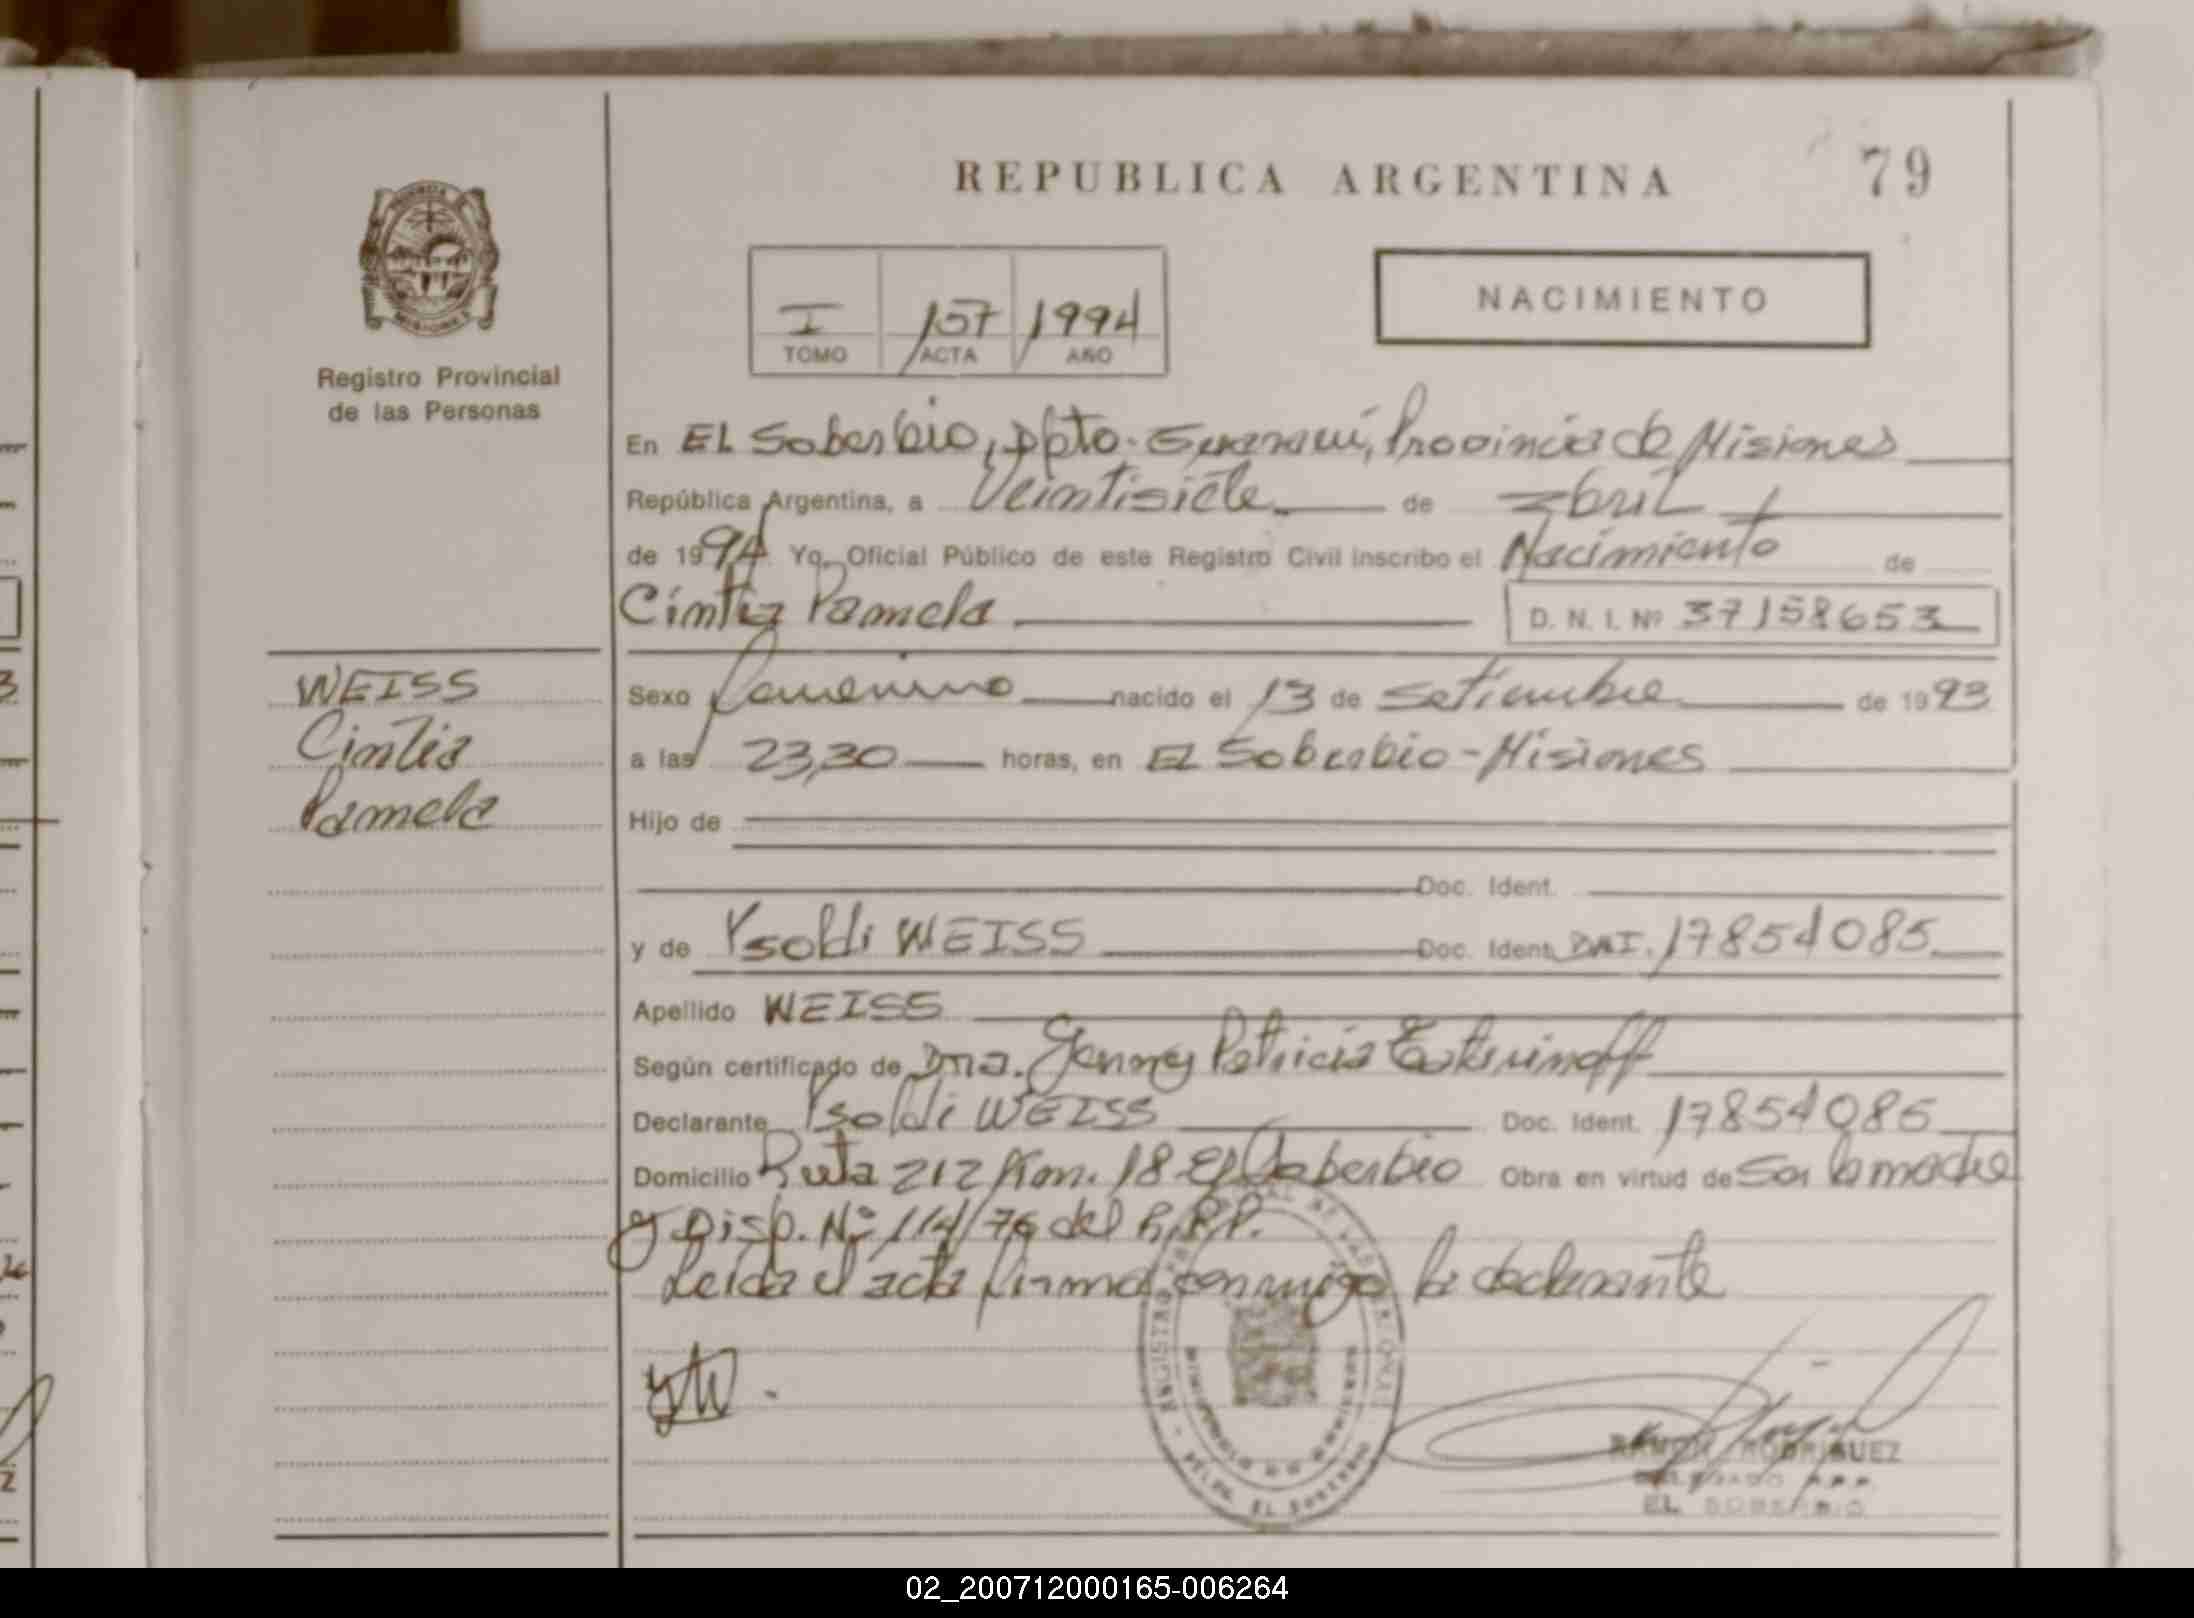 REPUBLICA ARGENTINA
79
I 157 1994
TOMO ACTA AÑO
NACIMIENTO
Registro Provincial
de las Personas
En EL Soberbio, Dpto. Guaraní, Provincia de Misiones
República Argentina, a Veintisiete de abril
de 1994 Yo, Oficial Público de este Registro Civil inscribo el Nacimiento de
Cintia Pamela
D. N. I. Nº 37158653
WEISS
Cintia
Pamela
Sexo femenino nacido el 13 de setiembre de 1993
a las 23,30 horas, en EL Soberbio - Misiones
Hijo de
Doc. Ident.
y de Ysoldi WEISS Doc. Ident. DNI. 17854085
Apellido WEISS
Según certificado de Dra. Jenny Patricia
Declarante Ysoldi WEISS Doc. Ident. 17854085
Domicilio Ruta 212 Km. 18 El Soberbio Obra en virtud de ser la madre
y Disp. Nº 114/76 del R.P.P.
Leida el acta firma conmigo la declarante
YW.
RAMON RODRIGUEZ
DELEGADO R.P.P.
EL SOBERBIO
02_200712000165-006264